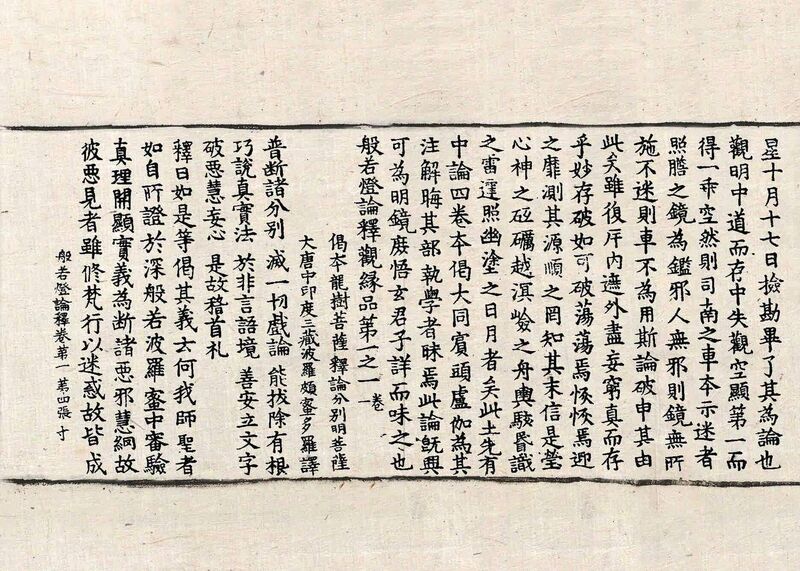 星十月十七日撿勘畢了其為論也
觀明中道而存中失觀空顯第一而
得一乖空然則司南之車本示迷者
照膽之鏡為鑑邪人無邪則鏡無所
施不迷則車不為用斯論破申其由
此矣雖復斥內遮外盡妄窮真而存
乎妙存破如可破蕩蕩焉恢恢焉迎
之靡測其源順之罔知其末信是瑩
心神之砥礪越溟嶮之舟輿駭昏識
之雷霆照幽塗之日月者矣此土先有
中論四卷本偈大同賓頭盧伽為其
注解晦其部執學者昧焉此論旣興
可為明鏡庶悟玄君子詳而味之也
般若燈論釋觀緣品第一之一 卷一
偈本龍樹菩薩 釋論分別明菩薩
大唐中印度三藏波羅頗蜜多羅譯
普斷諸分別 滅一切戲論 能拔除有根
巧說真實法 於非言語境 善安立文字
破惡慧妄心 是故稽首礼
釋曰如是等偈其義云何我師聖者
如自所證於深般若波羅蜜中審驗
真理開顯實義為斷諸惡邪慧網故
彼惡見者雖修梵行以迷惑故皆成
般若燈論釋卷第一 第四張 寸